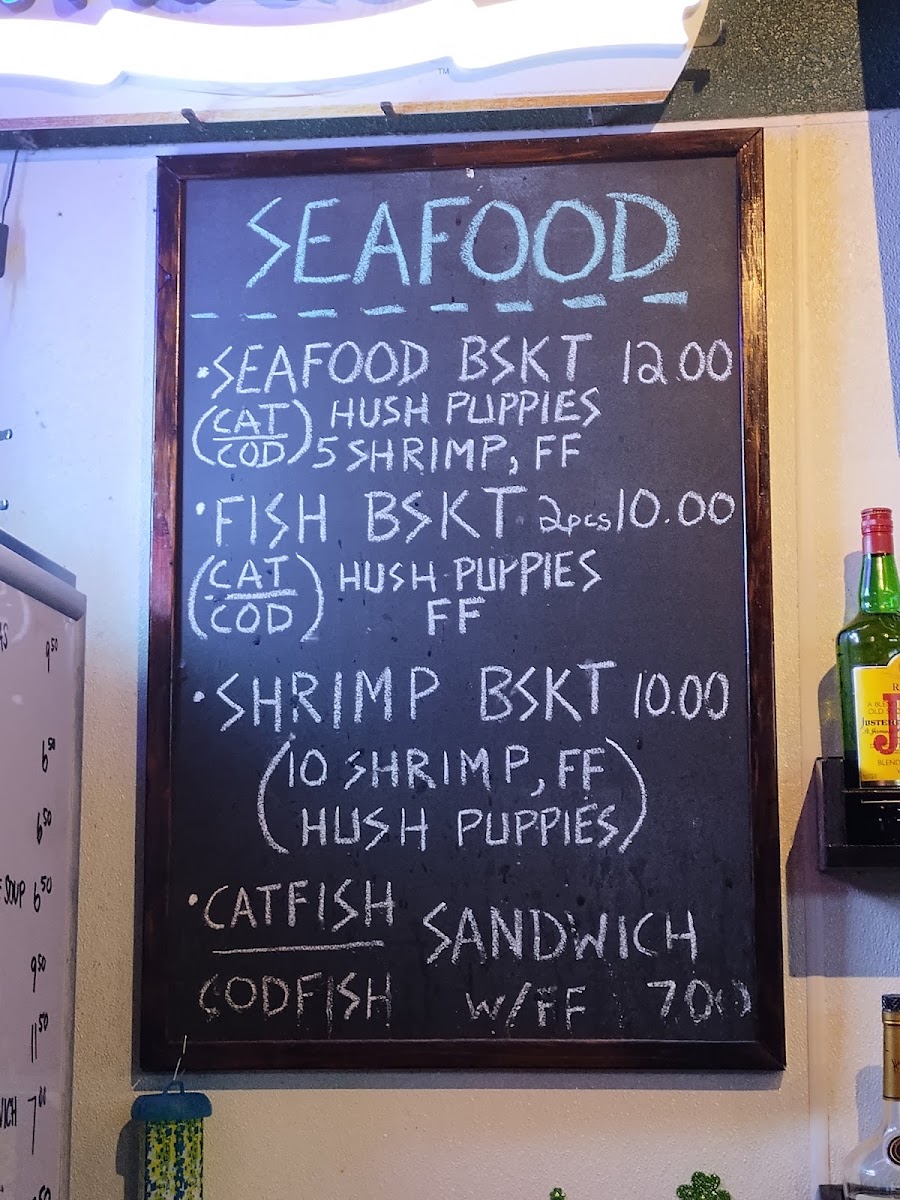 ™
SEAFOOD
• SEAFOOD BSKT 12.00
(CAT HUSH PUPPIES
COD) 5 SHRIMP, FF
• FISH BSKT 2pcs 10.00
(CAT HUSH PUPPIES
COD) FF
• SHRIMP BSKT 10.00
(10 SHRIMP, FF
HUSH PUPPIES)
• CATFISH
SANDWICH
CODFISH W/FF 7.00
9.50
6.50
6.50
SOUP 6.50
9.50
11.50
7.00